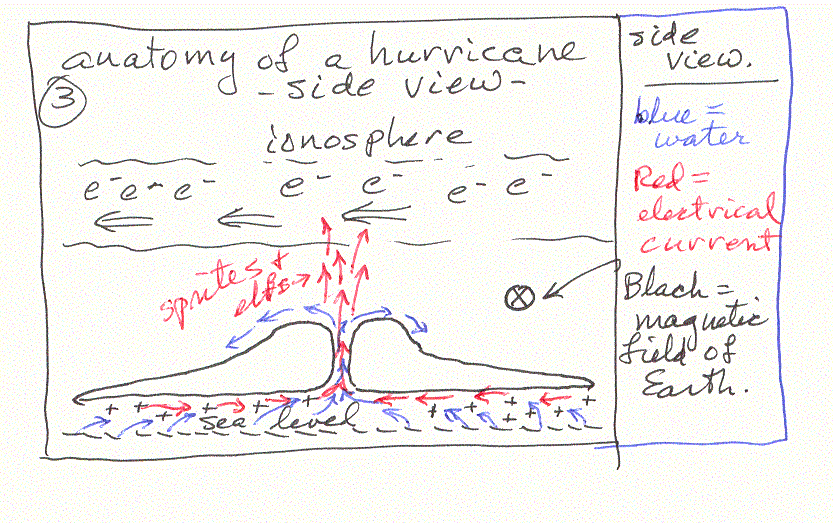 anatomy of a hurricane
- side view -
3
ionosphere
e⁻ e⁻ e⁻ e⁻ e⁻ e⁻ e⁻
sprites +
elfs
+ + + + + + + + + + + + +
sea level
side
view.
blue =
water
Red =
electrical
current
Black =
magnetic
field of
Earth.